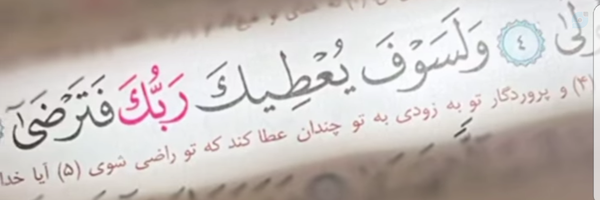 ولَىٰ ٤ وَلَسَوْفَ يُعْطِيكَ رَبُّكَ فَتَرْضَىٰٓ
(۴) و پروردگار تو به زودی به تو چندان عطا کند که تو راضی شوی (۵) آیا خدا